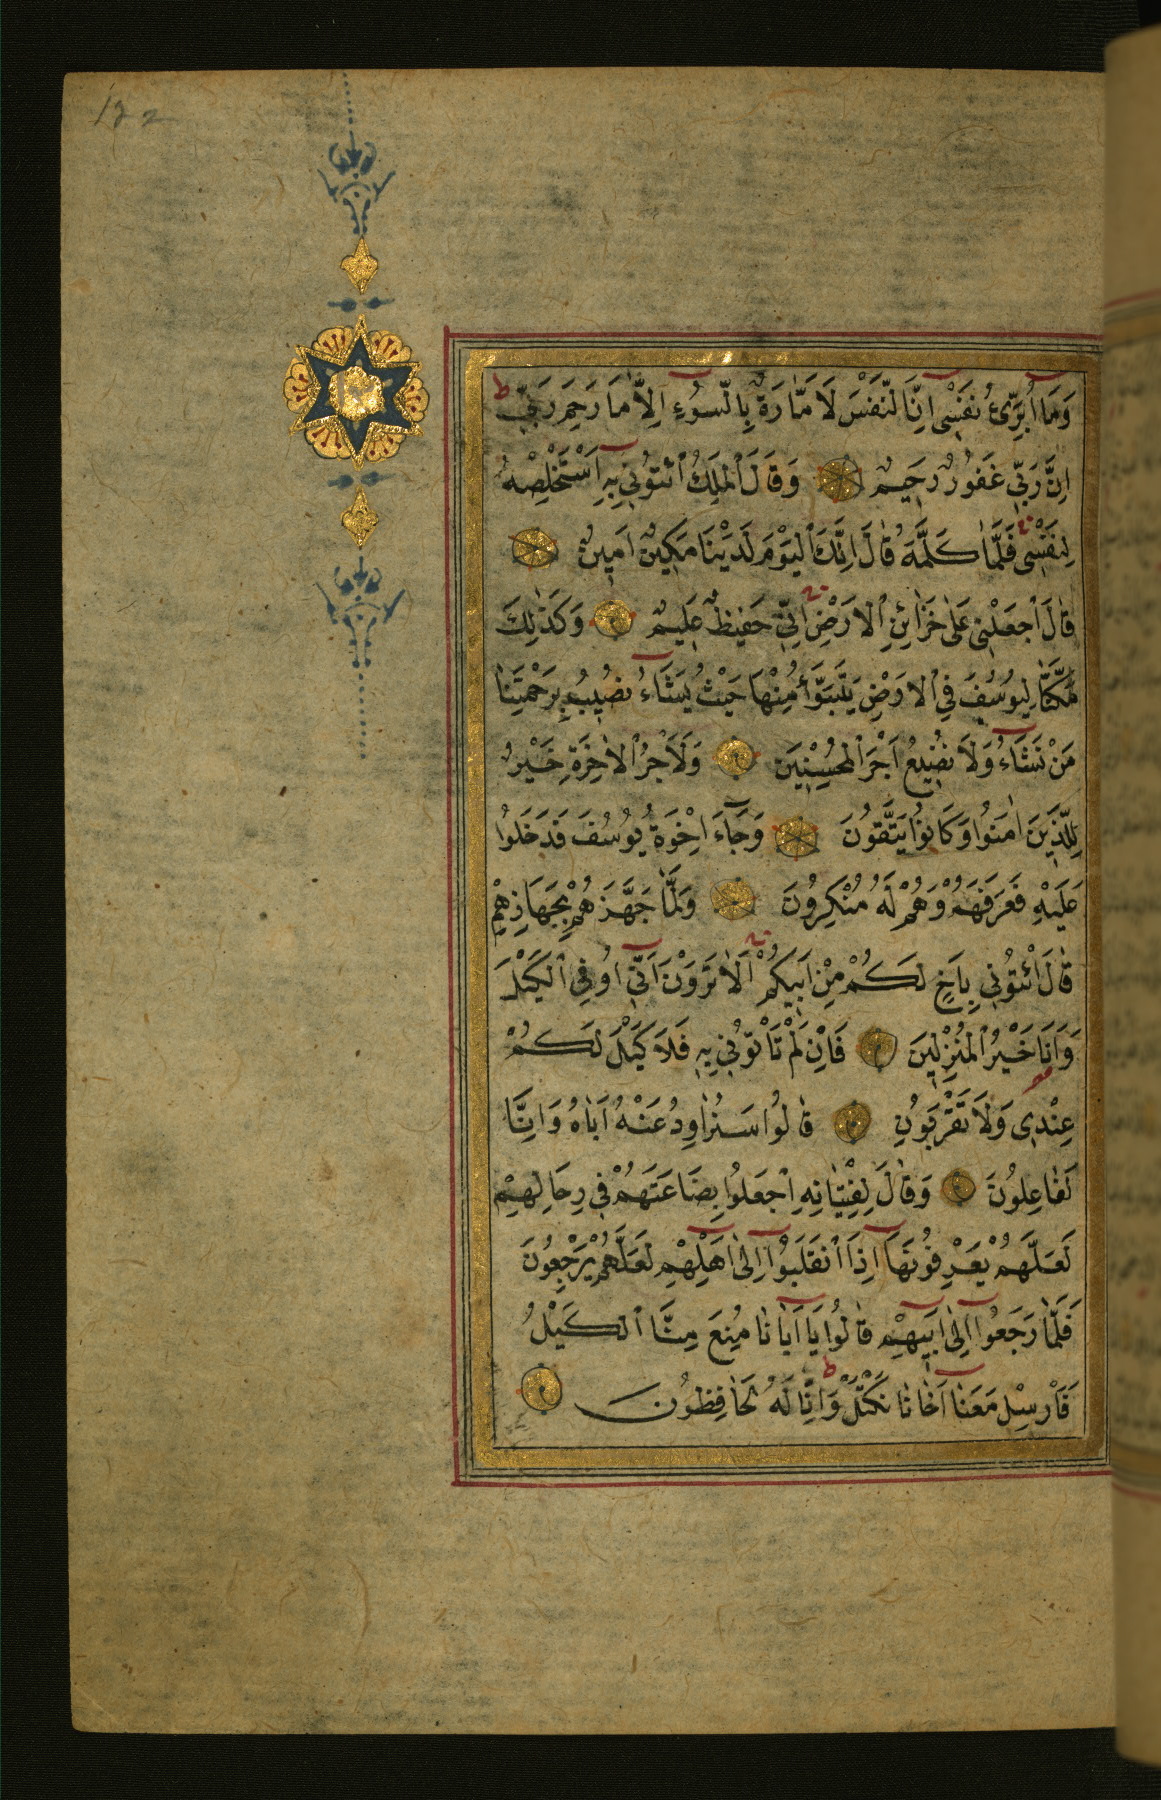 122
وَمَا اُبَرِّئُ نَفْسٖى اِنَّ النَّفْسَ لَاَمَّارَةٌ بِالسُّوٓءِ اِلَّا مَا رَحِمَ رَبّٖى ط
اِنَّ رَبّٖى غَفُورٌ رَحٖيمٌ وَقَالَ الْمَلِكُ ائْتُونٖى بِهٖٓ اَسْتَخْلِصْهُ
لِنَفْسٖى فَلَمَّا كَلَّمَهُ قَالَ اِنَّكَ الْيَوْمَ لَدَيْنَا مَكٖينٌ اَمٖينٌ
قَالَ اجْعَلْنٖى عَلٰى خَزَائِنِ الْاَرْضِ اِنّٖى حَفٖيظٌ عَلٖيمٌ وَكَذٰلِكَ
مَكَّنَّا لِيُوسُفَ فِى الْاَرْضِ يَتَبَوَّأُ مِنْهَا حَيْثُ يَشَٓاءُ نُصٖيبُ بِرَحْمَتِنَا
مَنْ نَشَٓاءُ وَلَا نُضٖيعُ اَجْرَ الْمُحْسِنٖينَ وَلَاَجْرُ الْاٰخِرَةِ خَيْرٌ
لِلَّذٖينَ اٰمَنُوا وَكَانُوا يَتَّقُونَ وَجَٓاءَ اِخْوَةُ يُوسُفَ فَدَخَلُوا
عَلَيْهِ فَعَرَفَهُمْ وَهُمْ لَهُ مُنْكِرُونَ وَلَمَّا جَهَّزَهُمْ بِجَهَازِهِمْ
قَالَ ائْتُونٖى بِاَخٍ لَكُمْ مِنْ اَبٖيكُمْ اَلَا تَرَوْنَ اَنّٖٓى اُوفِى الْكَيْلَ
وَاَنَا خَيْرُ الْمُنْزِلٖينَ فَاِنْ لَمْ تَأْتُونٖى بِهٖ فَلَا كَيْلَ لَكُمْ
عِنْدٖى وَلَا تَقْرَبُونِ قَالُوا سَنُرَاوِدُ عَنْهُ اَبَاهُ وَاِنَّا
لَفَاعِلُونَ وَقَالَ لِفِتْيَانِهِ اجْعَلُوا بِضَاعَتَهُمْ فٖى رِحَالِهِمْ
لَعَلَّهُمْ يَعْرِفُونَهَٓا اِذَا انْقَلَبُٓوا اِلٰٓى اَهْلِهِمْ لَعَلَّهُمْ يَرْجِعُونَ
فَلَمَّا رَجَعُٓوا اِلٰٓى اَبٖيهِمْ قَالُوا يَٓا اَبَانَا مُنِعَ مِنَّا الْكَيْلُ
فَاَرْسِلْ مَعَنَٓا اَخَانَا نَكْتَلْ وَاِنَّا لَهُ لَحَافِظُونَ